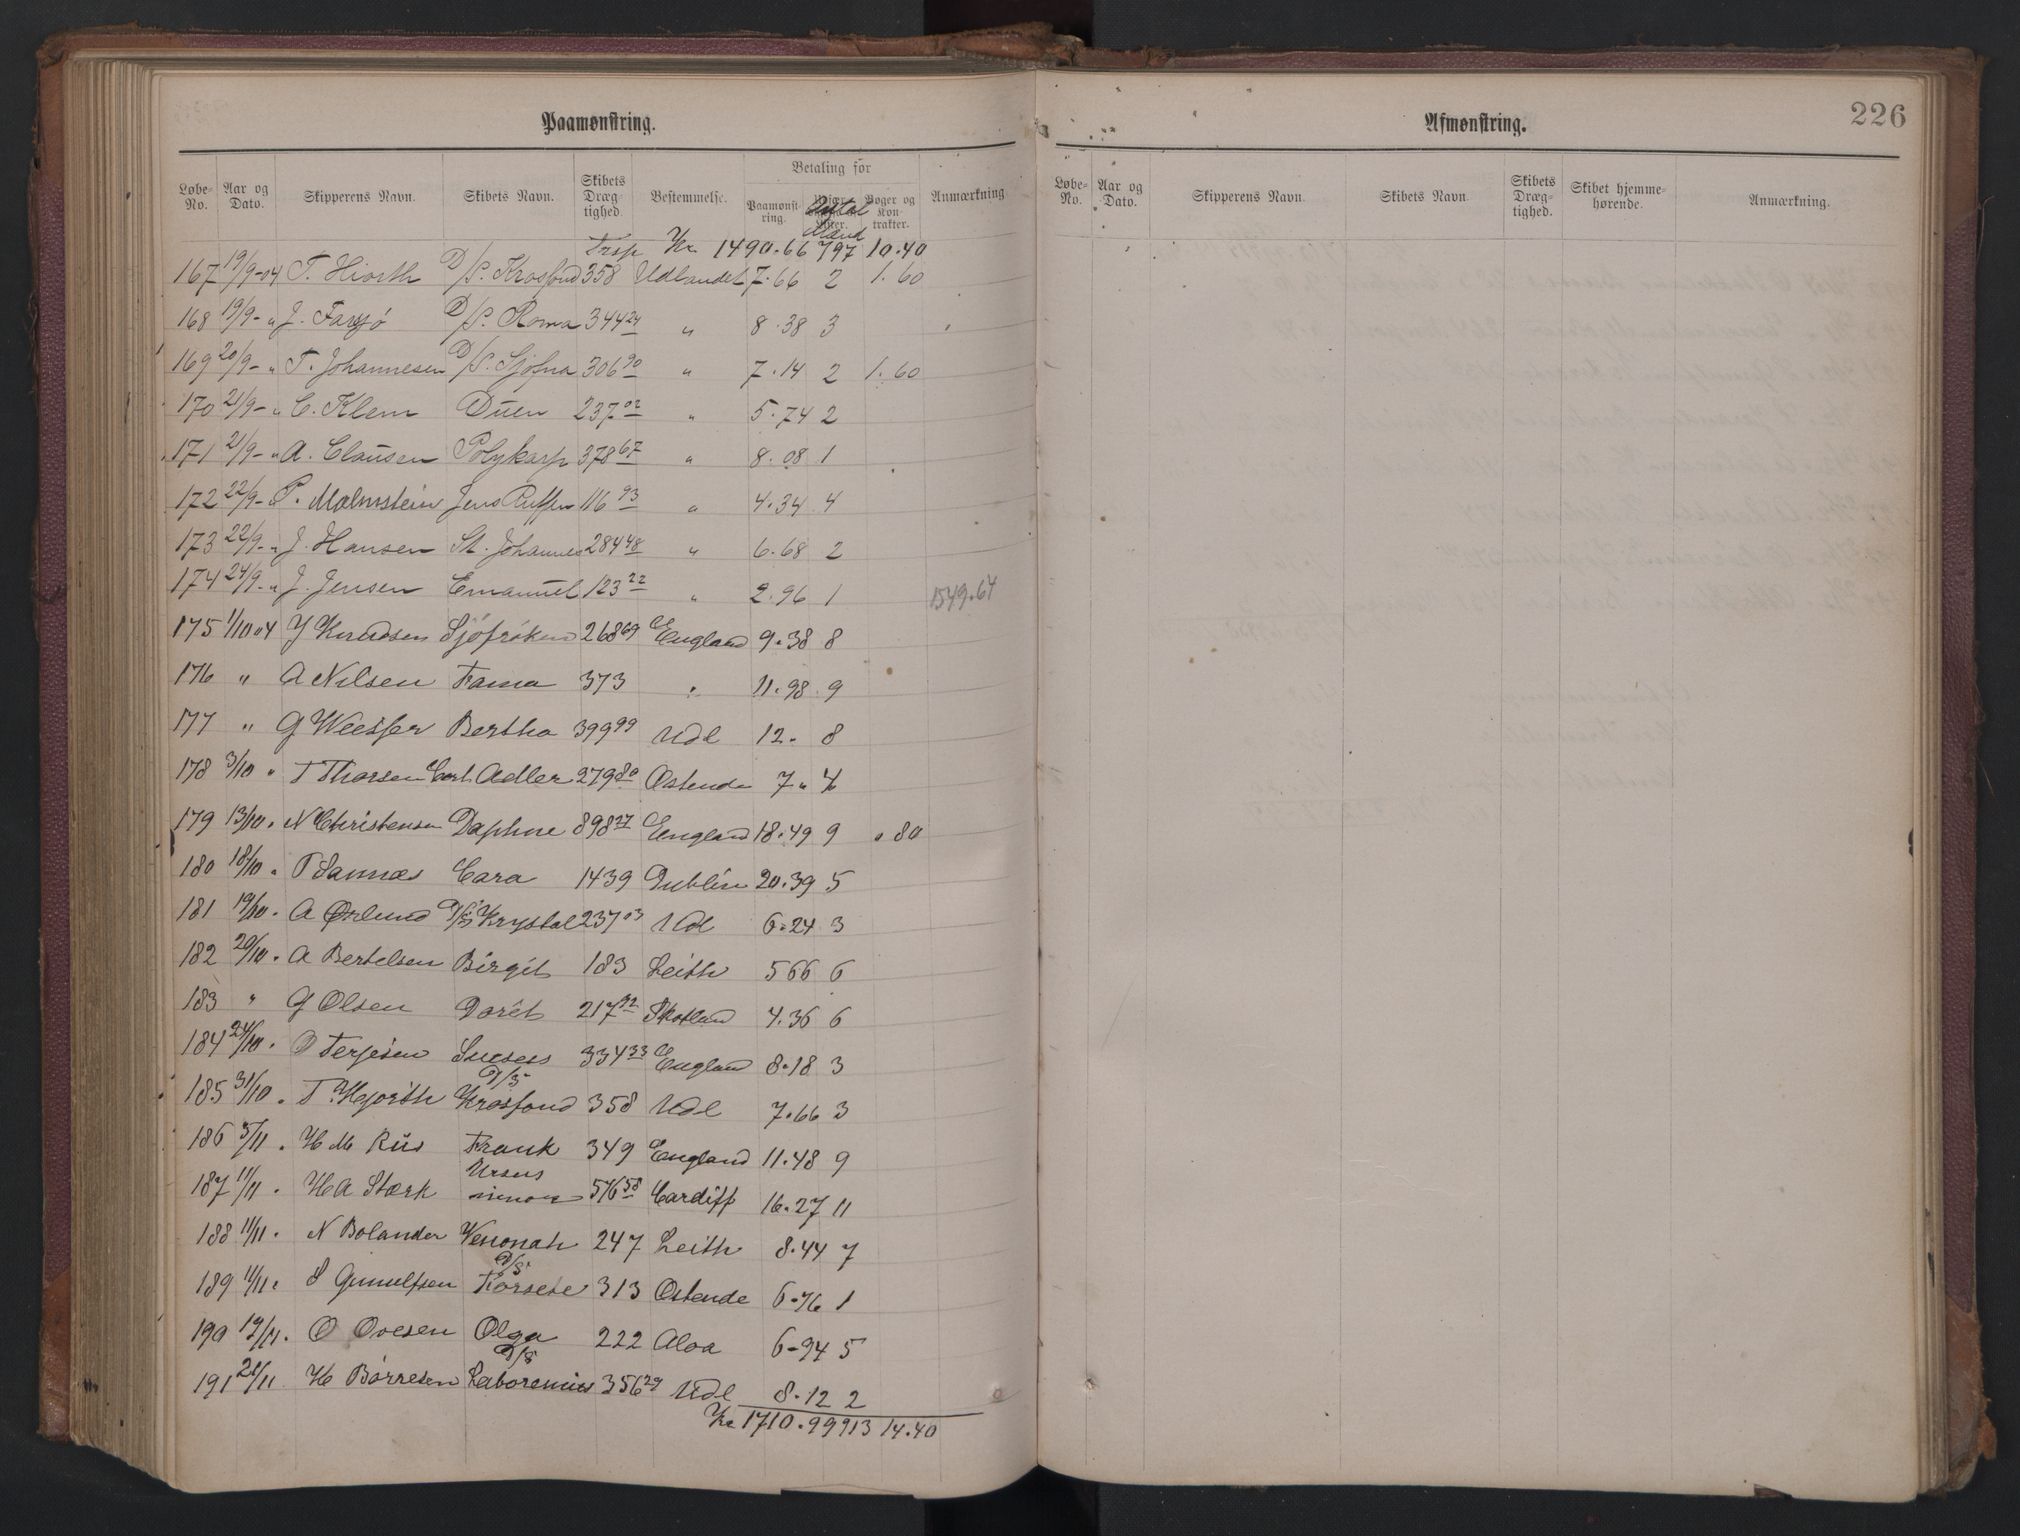 Paamønstring.
Løbe-No. Aar og Dato. Skipperens Navn. Skibets Navn. Skibets Dræg-tighed. Bestemmelse. Betaling for Paamønst-ring. Antal Mand Bøger og Kon-trakter. Anmærkning
Trsp Kr. 1490.66 797 10.40
167 19/9-04 T. Hiorth D/S. Krosfond 358 Udlandet 7.66 2 1.60
168 19/9 - " J. Farsjö D/S. Roma 344 24 " 8.38 3
169 20/9 - " T. Johannesen D/S. Sjöfna 306 90 " 7.14 2 1.60
170 21/9 - " C. Klem Duen 237 02 " 5.74 2
171 21/9 - " A. Clausen Polykarp 378 67 " 8.08 1
172 22/9 - P. Malmstein Jens Ruffen 116 93 " 4.34 4
173 22/9 - " J. Hansen St. Johannes 284 48 " 6.68 2
174 24/9 - " J. Jensen Emanuel 123 22 " 2.96 1 1549.64
175 1/10 04 J Knudsen Sjöfröken 268 69 England 9.38 8
176 " A Nilsen Fama 373 " 11.98 9
177 " G Weesser Bertha 399 99 Udl 12. 8
178 3/10 " T Thorsen Cort Adler 279 80 Ostende 7 " 4
179 13/10 . N Christensen Daphne 898 27 England 18.49 9 . 80
180 18/10 . T Sannæs Cara 1439 Dublin 20.39 5
181 19/10 . A Örlund D/S Krystal 237 03 Udl 6.24 3
182 20/10 . A Bertelsen Birgit 183 Leith 5 66 6
183 " G Olsen Doret 217 92 Skotland 4.36 6
184 24/10 . O Terjesen Sucses 334 33 England 8.18 3
185 31/10 . T Hjorth D/S Krosfond 358 Udl 7.66 3
186 5/11 . H M Riis Frank 349 England 11.48 9
187 11/11 . H A Stærk Ursus minor 576 58 Cardiff 16.27 11
188 11/11 . N Bolander Venonah 247 Leith 8.44 7
189 11/11 . S Gunulfsen D/S Korsete 313 Ostende 6.76 1
190 19/11 . O Ovesen Olga 222 Aloa 6-94 5
191 21/11 H Börresen D/S Laboremus 356 29 Udl 8.12 2
Kr 1710.99 913 14.40
Afmønstring.
226
Løbe-No. Aar og Dato. Skipperens Navn. Skibets Navn. Skibets Dræg-tighed. Skibet hjemme-hørende. Anmærkning.